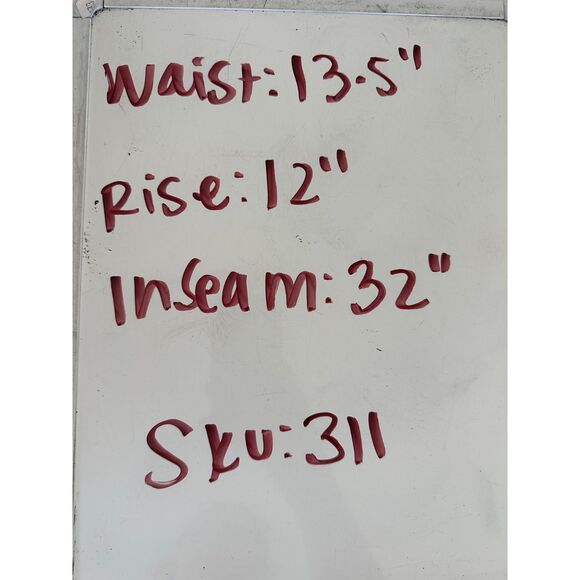 Waist: 13.5"
Rise: 12"
Inseam: 32"
SKU: 311